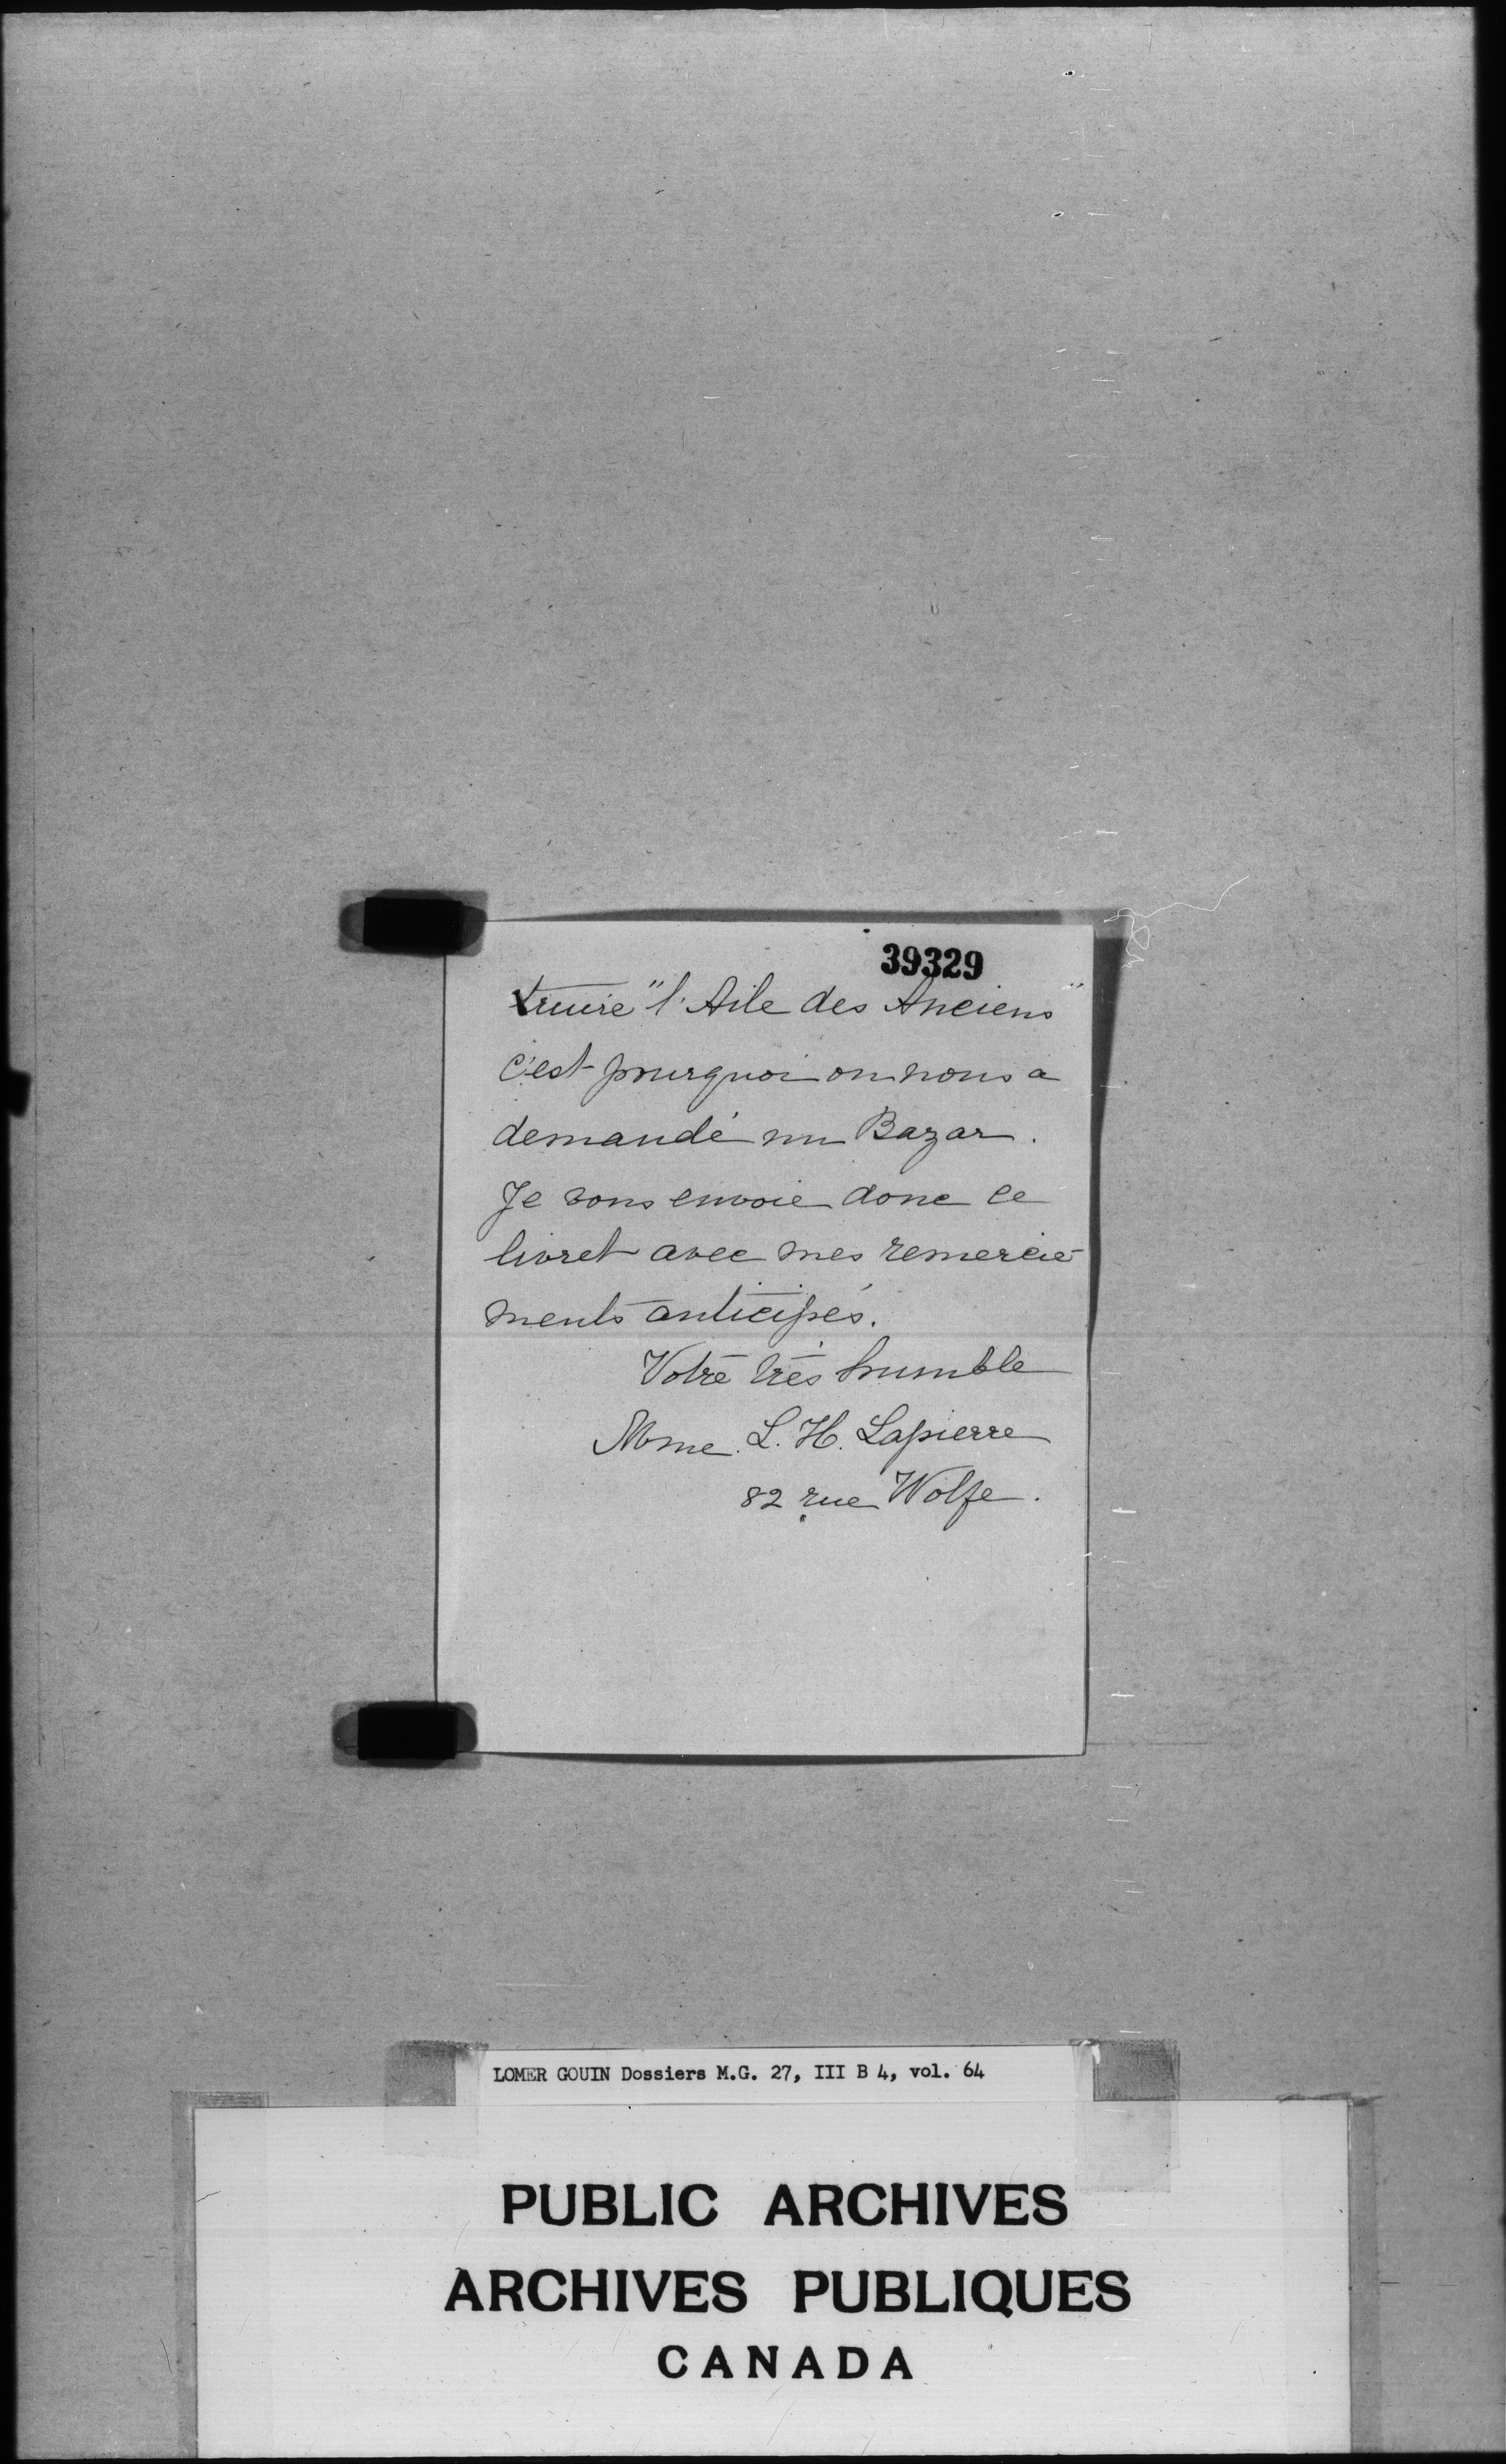 39329
truire "l'Aile des Anciens"
c'est pourquoi on nous a
demandé un Bazar.
Je vous envoie donc ce
livret avec mes remercie-
ments anticipés.
Votre très humble
Mme. L. H. Lapierre
82 rue Wolfe.
LOMER GOUIN Dossiers M.G. 27, III B 4, vol. 64
PUBLIC ARCHIVES
ARCHIVES PUBLIQUES
CANADA